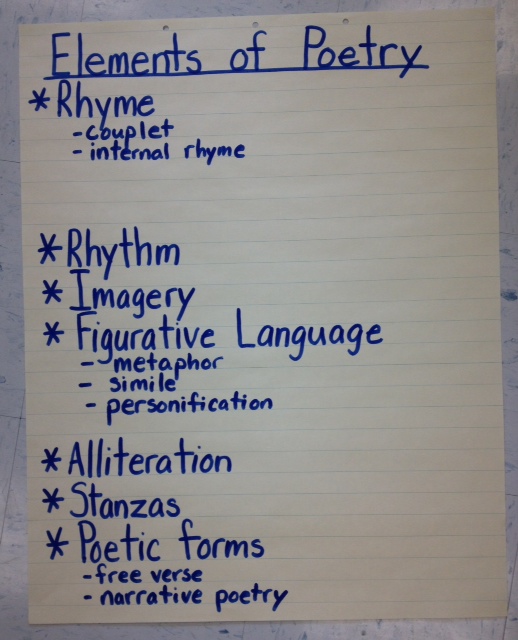 Elements of Poetry
* Rhyme
- couplet
- internal rhyme
* Rhythm
* Imagery
* Figurative Language
- metaphor
- simile
- personification
* Alliteration
* Stanzas
* Poetic forms
- free verse
- narrative poetry